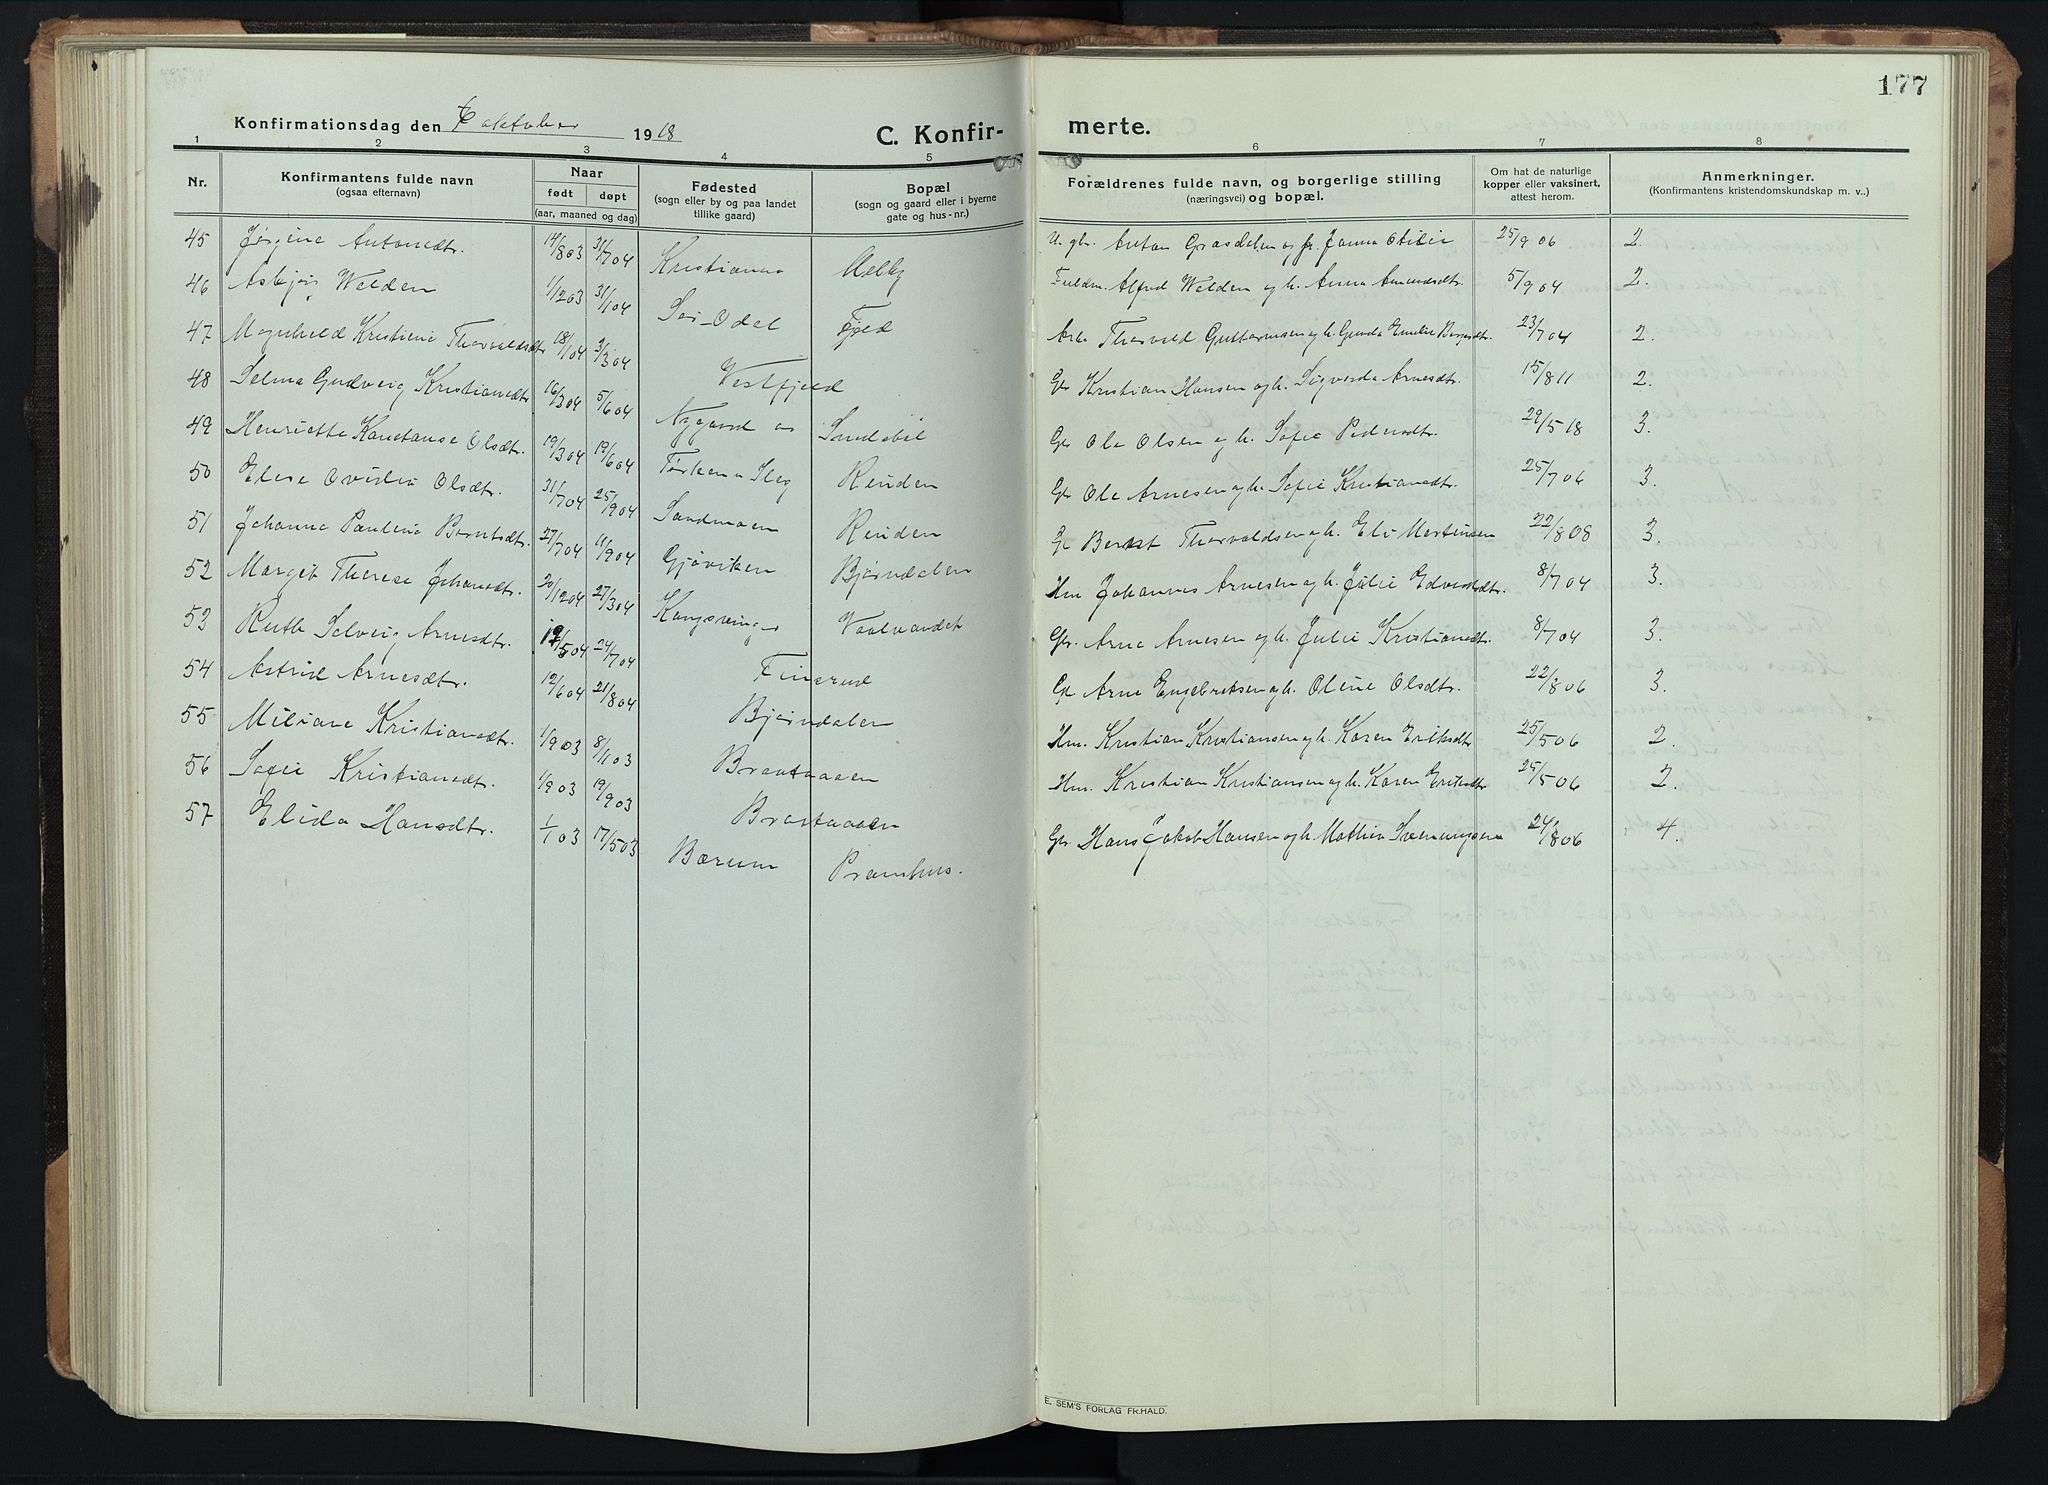 177
Konfirmationsdag den 6 oktober 1918
C. Konfirmerte.
1 2 3 4 5 6 7 8
Nr. Konfirmantens fulde navn (ogsaa efternavn) Naar født døpt (aar, maaned og dag) Fødested (sogn eller by og paa landet tillike gaard) Bopæl (sogn og gaard eller i byerne gate og hus-nr.) Forældrenes fulde navn, og borgerlige stilling (næringsvei) og bopæl. Om hat de naturlige kopper eller vaksinert, attest herom. Anmerkninger. (Konfirmantens kristendomskundskap m. v.)
45 Jørgine Antonsdtr. 14/8 03 31/7 04 Kristiania Melby U. gbr. Anton Grasdalen og fr. Janna Otilie 25/9 06 2.
46 Asbjør Welden 1/12 03 31/1 04 Sør-Odal Fjeld Fuldm. Alfred Welden og h. Anna Amundsdtr. 5/9 04 2.
47 Magnhild Kristine Thorvaldsdtr 18/1 04 3/3 04 Vestfjeld Arb. Thorvald Guttormsen og h. Gunda Emelie Borgersdtr. 23/7 04 2.
48 Selma Gudveig Kristiansdtr 16/3 04 5/6 04 Nygaard Sandebøl Gbr Kristian Hansen og h. Sigverda Arnesdtr. 15/8 11 2.
49 Henriette Konstanse Olsdtr. 19/3 04 19/6 04 Reiden Gbr Ole Olsen og h. Sofie Pedersdtr. 29/5 18 3.
50 Elise Ovidia Olsdtr. 31/7 04 25/9 04 Sandmoen Reiden Gbr Ole Arnesen og h. Sofie Kristiansdtr. 25/7 06 3.
51 Johanna Pauline Berntsdtr. 27/7 04 11/9 04 Gjøviken Bjørndalen G Bernt Thorvaldsen og h. Eli Mortensen 22/8 08 3.
52 Margit Therese Johansdtr. 20/12 04 27/3 04 Kongsvinger Vaalvandet Hm Johannes Arnesen og h. Julie Edvardsdtr. 8/7 04 3.
53 Ruth Solveig Arnesdtr. 19/5 04 24/7 04 Finsrud Gbr. Arne Arnesen og h. Julie Kristiansdtr. 8/7 04 3.
54 Astrid Arnesdtr. 12/6 04 21/8 04 Bjørndalen G. Arne Engebretsen og h. Oline Olsdtr. 22/8 06 3.
55 Miliane Kristiansdtr. 1/9 03 8/11 03 Braataaen Hm. Kristian Kristiansen og h. Karen Eriksdtr 25/5 06 2.
56 Sofie Kristiansdtr. 1/9 03 19/9 03 Braataaen Hm. Kristian Kristiansen og h. Karen Eriksdtr 25/5 06 2.
57 Elida Hansdtr. 1/1 03 17/5 03 Bærum Pramhus. Gbr Hans Jakob Hansen og h. Mathea Sveningsen 24/8 06 4.
E. SEM'S FORLAG FR.HALD.